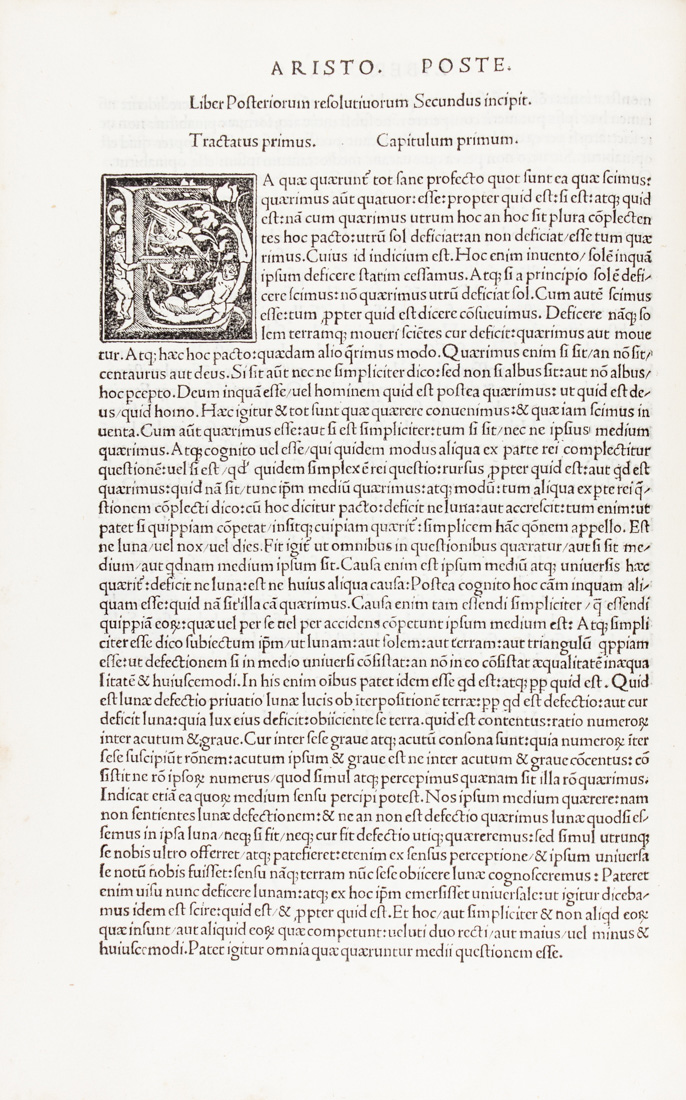 ARISTO. POSTE.
Liber Posteriorum resolutiuorum Secundus incipit.
Tractatus primus. Capitulum primum.
EA quæ quærunt᷒ tot sane profecto quot sunt ea quæ scimus:
quærimus aūt quatuor: esse: propter quid est: si est: atq; quid
est: nā cum quærimus utrum hoc an hoc sit plura cōplecten
tes hoc pacto: utrū sol deficiat: an non deficiat/esse tum quæ
rimus. Cuius id indicium est. Hoc enim inuento/solē inquā
ipsum deficere statim cessamus. Atq; si a principio solē defi-
cere scimus: nō quærimus utrū deficiat sol. Cum autē scimus
esse: tum ꝓpter quid est dicere cōsueuimus. Deficere nāq; so
lem terramq; moueri sciētes cur deficit: quærimus aut moue
tur. Atq; hæc hoc pacto: quædam alio q̄rimus modo. Quærimus enim si sit/an nō sit/
centaurus aut deus. Si sit aūt nec ne simpliciter dico: sed non si albus sit: aut nō albus/
hoc pcepto. Deum inquā esse/uel hominem quid est postea quærimus: ut quid est de-
us/quid homo. Hæc igitur & tot sunt quæ quærere conuenimus: & quæ iam scimus in
uenta. Cum aūt quærimus esse: aut si est simpliciter: tum si sit/nec ne ipsius medium
quærimus. Atq; cognito uel esse/qui quidem modus aliqua ex parte rei complectitur
questionē: uel si est/qd' quidem simplex ē rei questio: rursus ꝓpter quid est: aut qd est
quærimus: quid nā sit/tunc ipm̄ mediū quærimus: atq; modū: tum aliqua ex pte rei q̄-
stionem cōplecti dico: cū hoc dicitur pacto: deficit ne luna: aut accrescit: tum enim: ut
patet si quippiam cōpetat/insitq; cuipiam quærit᷒: simplicem hāc qōnem appello. Est
ne luna/uel nox/uel dies. Fit igit᷒ ut omnibus in questionibus quæratur/aut si sit me-
dium/aut qdnam medium ipsum sit. Causa enim est ipsum mediū atq; uniuersis hæc
quærit᷒: deficit ne luna: est ne huius aliqua causa: Postea cognito hoc cām inquam ali-
quam esse: quid nā sit illa cā quærimus. Causa enim tam essendi simpliciter/q̄ essendi
quippiā eoꝝ: quæ uel per se uel per accidens cōpetunt ipsum medium est: Atq; simpli
citer esse dico subiectum ipm̄/ut lunam: aut solem: aut terram: aut triangulū qppiam
esse: ut defectionem si in medio uniuersi cōsistat: an nō in eo cōsistat æqualitatē inæqua
litatē & huiuscemodi. In his enim oībus patet idem esse qd est: atq; pp quid est. Quid
est lunæ defectio priuatio lunæ lucis ob īterpositionē terræ: pp qd est defectio: aut cur
deficit luna: quia lux eius deficit: obiiciente se terra. quid est contentus: ratio numeroꝝ
inter acutum & graue. Cur inter sese graue atq; acutū consona sunt: quia numeroꝝ iter
sese suscipiūt rōnem: acutum ipsum & graue est ne inter acutum & graue cōcentus: cō
sistit ne rō ipsoꝝ numerus/quod simul atq; percepimus quænam sit illa rō quærimus.
Indicat etiā ea quoꝝ medium sensu percipi potest. Nos ipsum medium quærere: nam
non sentientes lunæ defectionem: & ne an non est defectio quærimus lunæ quodsi es-
semus in ipsa luna/neq; si fit/neq; cur fit defectio utiq; quæreremus: sed simul utrunq;
se nobis ultro offerret/atq; patefieret: etenim ex sensus perceptione/& ipsum uniuersa
le notū nobis fuisset: sensu nāq; terram nūc sese obiicere lunæ cognosceremus: Pateret
enim uisu nunc deficere lunam: atq; ex hoc ipm̄ emersisset uniuersale: ut igitur diceba-
mus idem est scire: quid est/& ꝓpter quid est. Et hoc/aut simpliciter & non aliqd eoꝝ
quæ insunt/aut aliquid eoꝝ quæ competunt: ueluti duo recti/aut maius/uel minus &
huiuscemodi. Patet igitur omnia quæ quæruntur medii questionem esse.